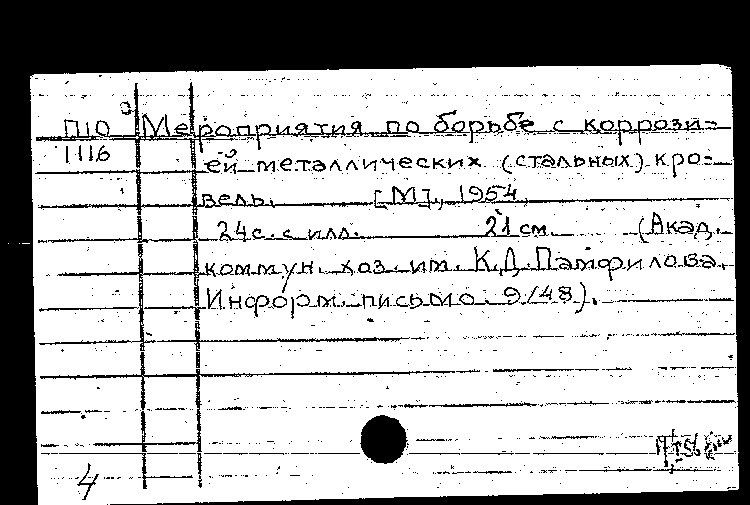 П10 Мероприятия по борьбе с коррози=
1116 ей металлических (стальных) кро=
вель. [М], 1954,
24с. с илл. 21 см. (Акад.
коммун. хоз. им. К.Д. Памфилова.
Информ. письмо. 9/48).
4